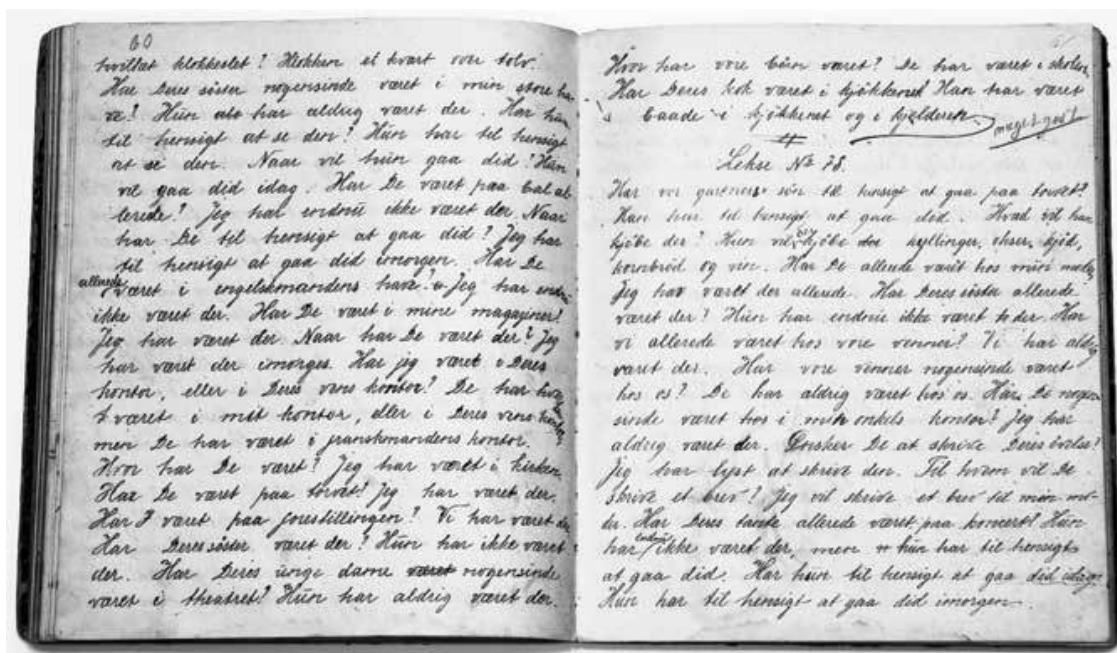 60
hvilket klokkeslet? Klokken et kvart over tolv.
Har Deres söster nogensinde været i min store ha-
ve? Hun har aldrig været der. Har hun
til hensigt at se den? Hun har til hensigt
at se den. Naar vil hun gaa did? Hun
vil gaa did idag. Har De været paa bal al-
lerede? Jeg har endnu ikke været der. Naar
har De til hensigt at gaa did? Jeg har
til hensigt at gaa did imorgen. Har De
allerede været i engelskmandens have? Jeg har endnu
ikke været der. Har De været i mine magaziner?
Jeg har været der. Naar har De været der? Jeg
har været der imorges. Har jeg været i Deres
kontor, eller i Deres vens kontor? De har
været i mit kontor, eller i Deres vens kontor,
men De har været i franskmandens kontor.
Hvor har De været? Jeg har været i kirken.
Har De været paa torvet? Jeg har været der.
Har I været paa forestillingen? Vi har været der
Har Deres söster været der? Hun har ikke været
der. Har Deres unge dame været nogensinde
været i theatret? Hun har aldrig været der.
61
Hvor har vore börn været? De har været i skolen.
Har Deres kok været i kjökkenet? Han har været
baade i kjökkenet og i kjelderen.
meget god!
Lekse No 78.
Har vor gartners sön til hensigt at gaa paa torvet?
Han har til hensigt at gaa did. Hvad vil han
kjöbe der? Han vil kjöbe kyllinger, okser, kjöd,
kornbröd og vin. Har De allerede været hos min
Jeg har været der allerede. Har Deres söster allerede
været der? Hun har endnu ikke været der. Har
vi allerede været hos vore venner? Vi har aldrig
været der. Har vore venner nogensinde været
hos os? De har aldrig været hos os. Har De nogen-
sinde været hos i min onkels kontor? Jeg har
aldrig været der. Önsker De at skrive Deres övelse?
Jeg har lyst at skrive den. Til hvem vil De
skrive et brev? Jeg vil skrive et brev til min mo-
der. Har Deres tante allerede været paa konsert? Hun
har endnu ikke været der, men hun har til hensigt
at gaa did. Har hun til hensigt at gaa did idag?
Hun har til hensigt at gaa did imorgen.